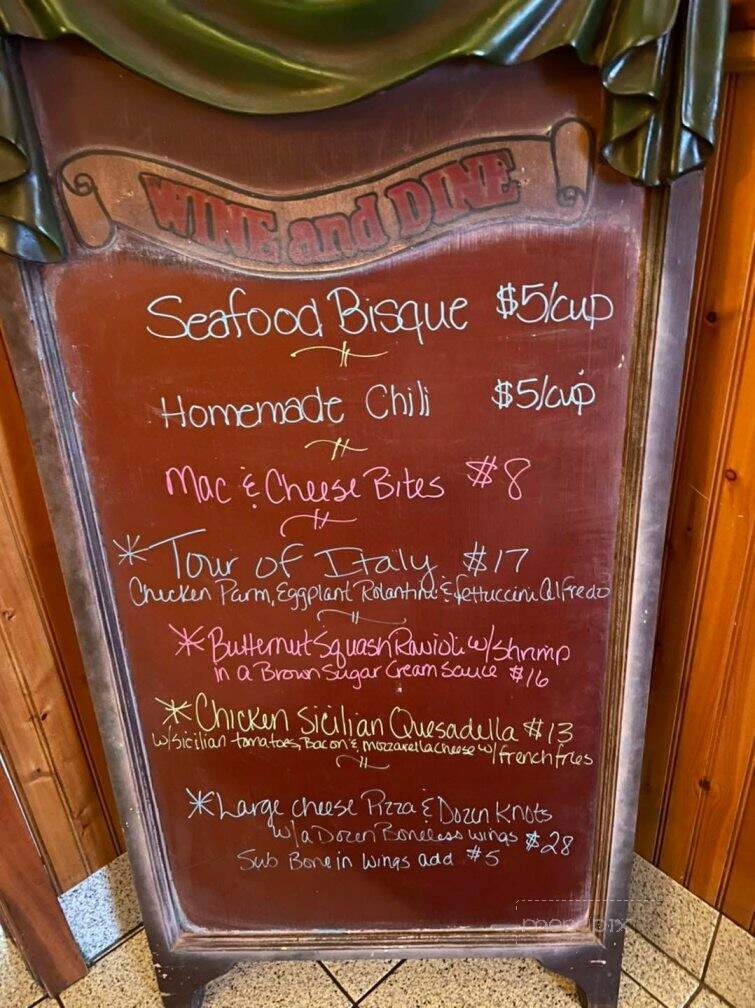 WINE and DINE
Seafood Bisque $5/cup
Homemade Chili $5/cup
Mac & Cheese Bites $8
* Tour of Italy $17
Chicken Parm, Eggplant Rolantini & fettuccini Alfredo
* Butternut Squash Ravioli w/shrimp
in a Brown Sugar Cream Sauce $16
* Chicken Sicilian Quesadella $13
w/Sicilian tomatoes, Bacon & mozzarella cheese w/french fries
* Large Cheese Pizza & Dozen Knots
w/a Dozen Boneless wings $28
Sub Bone in Wings add $5
menupix